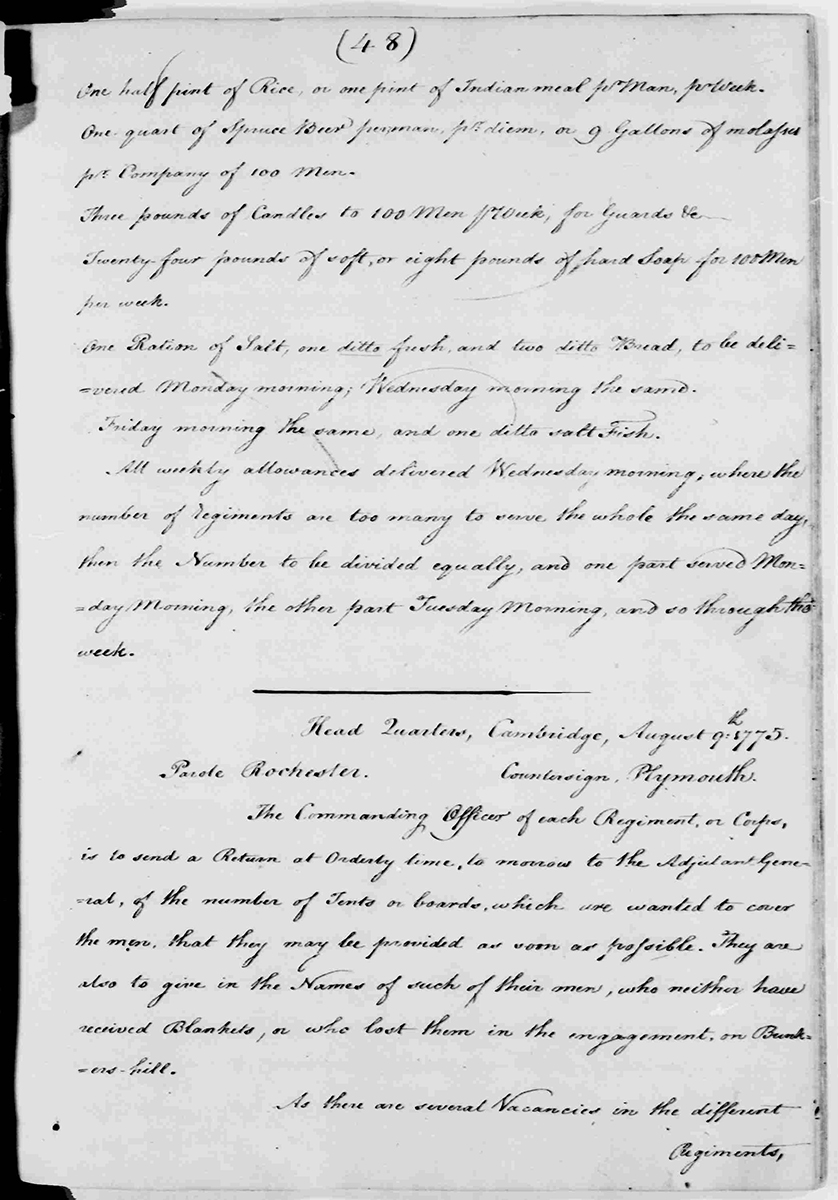 (48)
One half pint of Rice, or one pint of Indian meal pr Man, pr Week.
One quart of Spruce Beer per man, pr diem, or 9 Gallons of molasses
pr Company of 100 Men.
Three pounds of Candles to 100 Men pr Week, for Guards &c
Twenty-four pounds of soft, or eight pounds of hard Soap for 100 Men
per week.
One Ration of Salt, one ditto fresh, and two ditto Bread, to be deli=
=vered Monday morning; Wednesday morning the same.
Friday morning the same, and one ditto salt Fish.
All weekly allowances delivered Wednesday morning; where the
number of regiments are too many to serve the whole the same day,
then the Number to be divided equally, and one part served Mon=
=day Morning, the other part Tuesday Morning, and so through the
week.
Head Quarters, Cambridge, August 9th 1775.
Parole Rochester. Countersign, Plymouth.
The Commanding Officer of each Regiment, or Corps,
is to send a Return at Orderly time, to morrow to the Adjutant Gene=
=ral, of the number of Tents or boards, which are wanted to cover
the men, that they may be provided as soon as possible. They are
also to give in the Names of such of their men, who neither have
received Blankets, or who lost them in the engagement, on Bunk=
=ers-hill.
As there are several Vacancies in the different
Regiments,